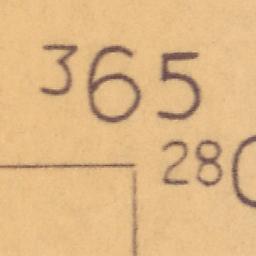 365
28